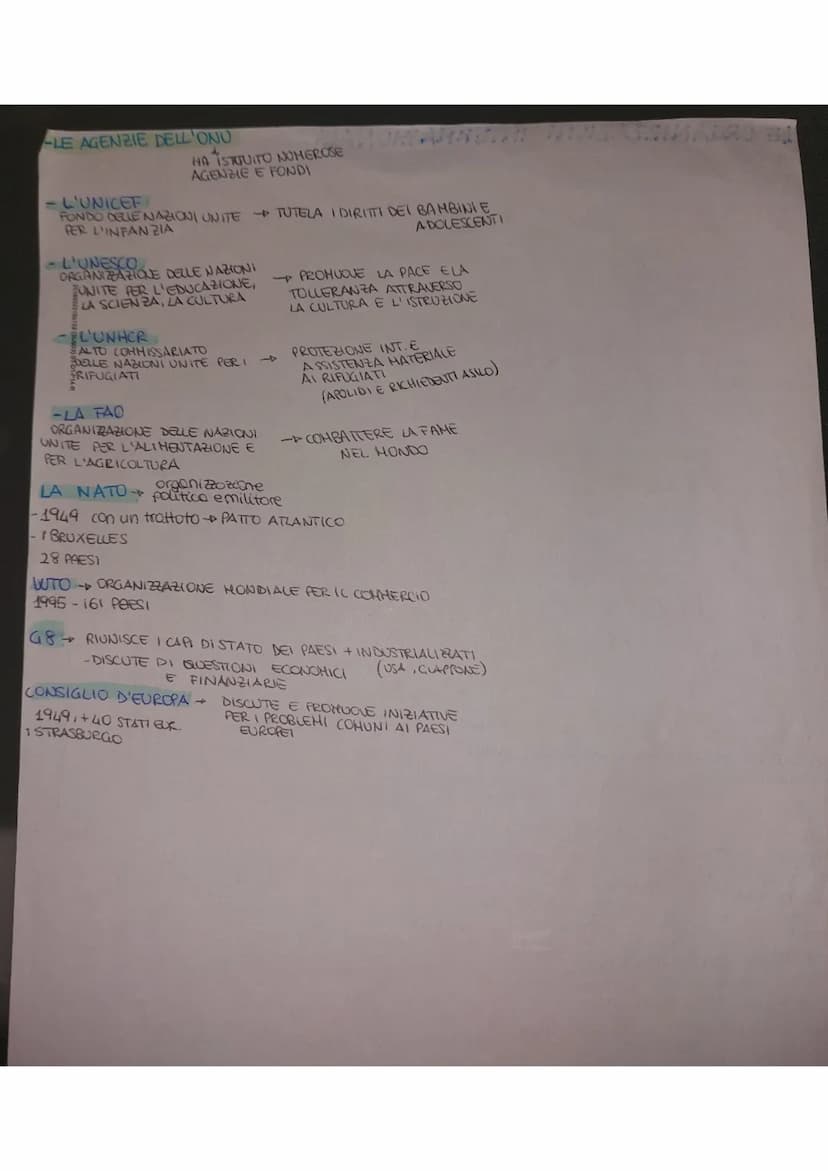 -LE AGENZIE DELL'ONU
HA ISTITUITO NUMEROSE
AGENZIE E FONDI
- L'UNICEF
FONDO DELLE NAZIONI UNITE → TUTELA I DIRITTI DEI BAMBINI E
PER L'INFANZIA ADOLESCENTI
- L'UNESCO
ORGANIZZAZIONE DELLE NAZIONI → PROMUOVE LA PACE E LA
UNITE PER L'EDUCAZIONE, TOLLERANZA ATTRAVERSO
LA SCIENZA, LA CULTURA LA CULTURA E L'ISTRUZIONE
- L'UNHCR
ALTO COMMISSARIATO PROTEZIONE INT. E
DELLE NAZIONI UNITE PER I → ASSISTENZA MATERIALE
RIFUGIATI AI RIFUGIATI
(APOLIDI E RICHIEDENTI ASILO)
-LA FAO
ORGANIZZAZIONE DELLE NAZIONI → COMBATTERE LA FAME
UNITE PER L'ALIMENTAZIONE E NEL MONDO
PER L'AGRICOLTURA
LA NATO → organizzazione
politica e militare
-1949 con un trattato → PATTO ATLANTICO
- BRUXELLES
28 PAESI
WTO → ORGANIZZAZIONE MONDIALE PER IL COMMERCIO
1995 - 161 PAESI
G8 → RIUNISCE I CAPI DI STATO DEI PAESI + INDUSTRIALIZZATI
-DISCUTE DI QUESTIONI ECONOMICI (USA, GIAPPONE)
E FINANZIARIE
CONSIGLIO D'EUROPA → DISCUTE E PROMUOVE INIZIATIVE
1949, +40 STATI EUR PER I PROBLEMI COMUNI AI PAESI
STRASBURGO EUROPEI